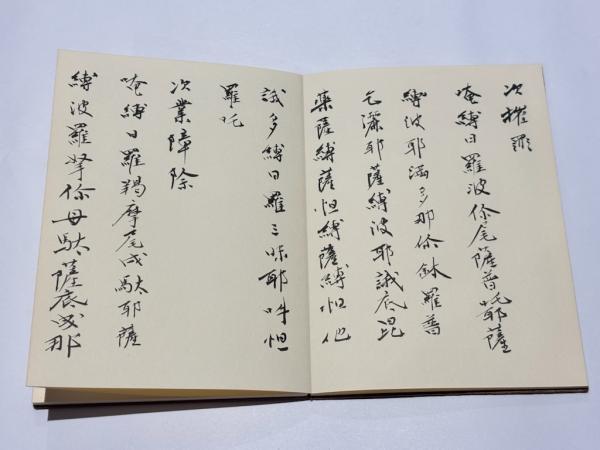 次摧罪
唵縛日羅波你尾薩普吒耶薩
縛波耶満多那你鉢羅普
乞灑耶薩縛波耶誐底毘
薬薩縛薩怛縛薩縛怛他
誐多縛日羅三昧耶吽怛
羅吒
次業障除
唵縛日羅羯摩尾戍駄耶薩
縛波羅拏你母駄薩底那